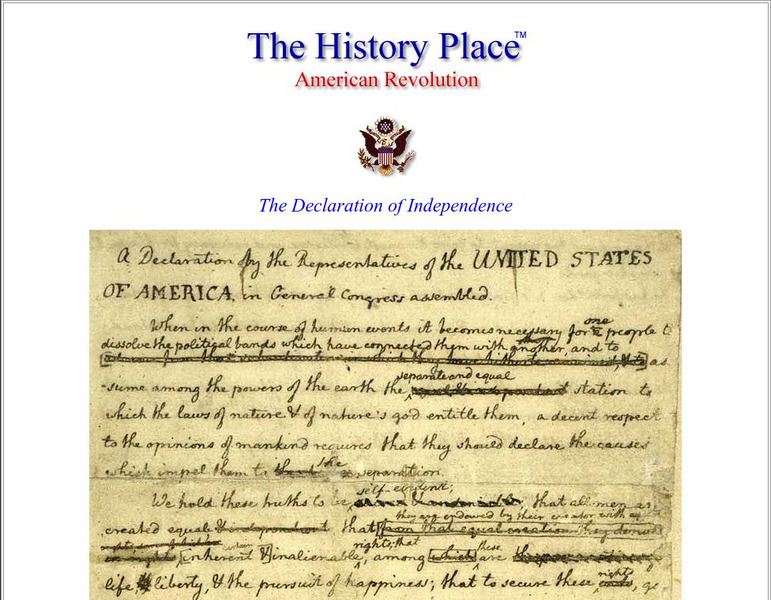 The History Place™
American Revolution
The Declaration of Independence
A Declaration by the Representatives of the UNITED STATES
OF AMERICA, in General Congress assembled.
When in the course of human events it becomes necessary for one people to
dissolve the political bands which have connected them with another, and to
as
separate and equal
-sume among the powers of the earth the station to
which the laws of nature & of nature's god entitle them, a decent respect
to the opinions of mankind requires that they should declare the causes
which impel them to the separation.
self-evident;
We hold these truths to be that all men are
they are endowed by their creator with
created equal that from that equal creation they
rights; that these
inherent & inalienable, among which are
rights
life liberty, & the pursuit of happiness; that to secure these